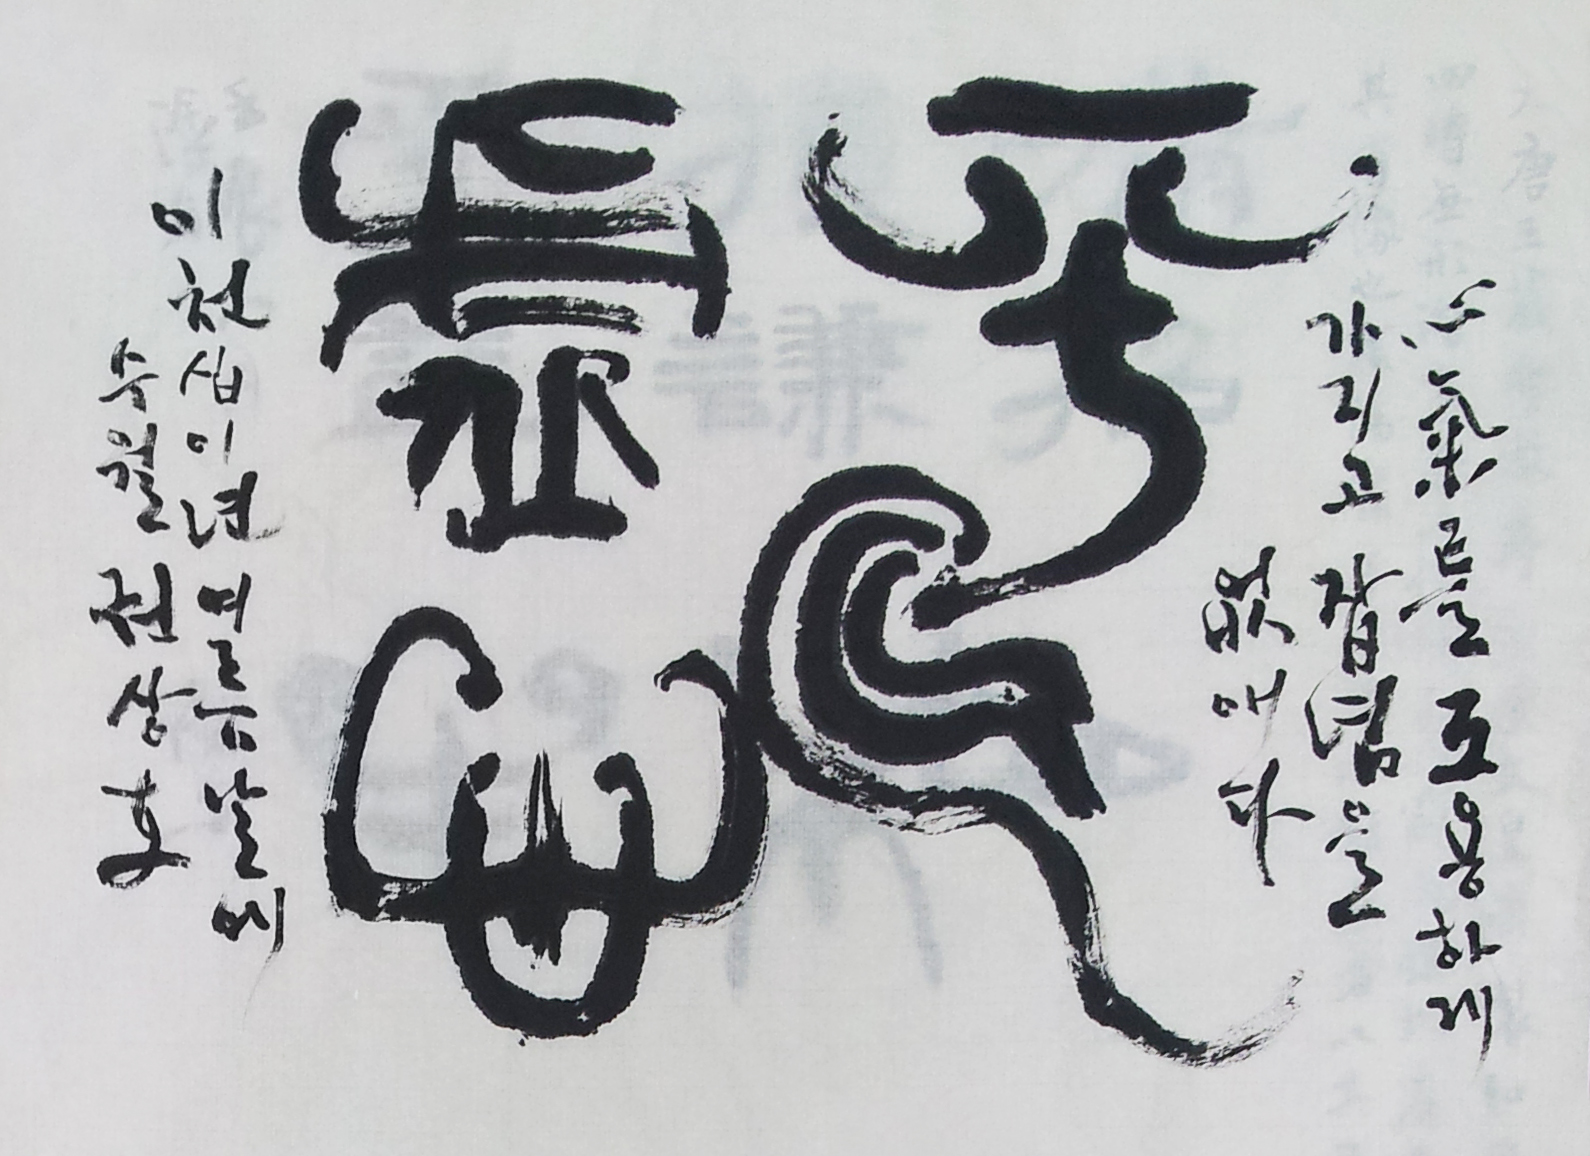 心氣를 조용하게
가지고 잡념을
없애다
平氣
虛心
이천십이년 여름날에
수월 권상호